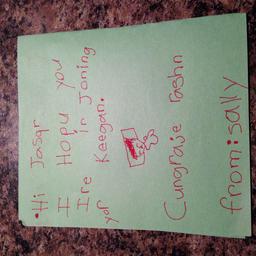 •Hi Jasqr
I Hopu you
Ire ir Joning
yor Keegan.
Cungraje rashn
from:sally